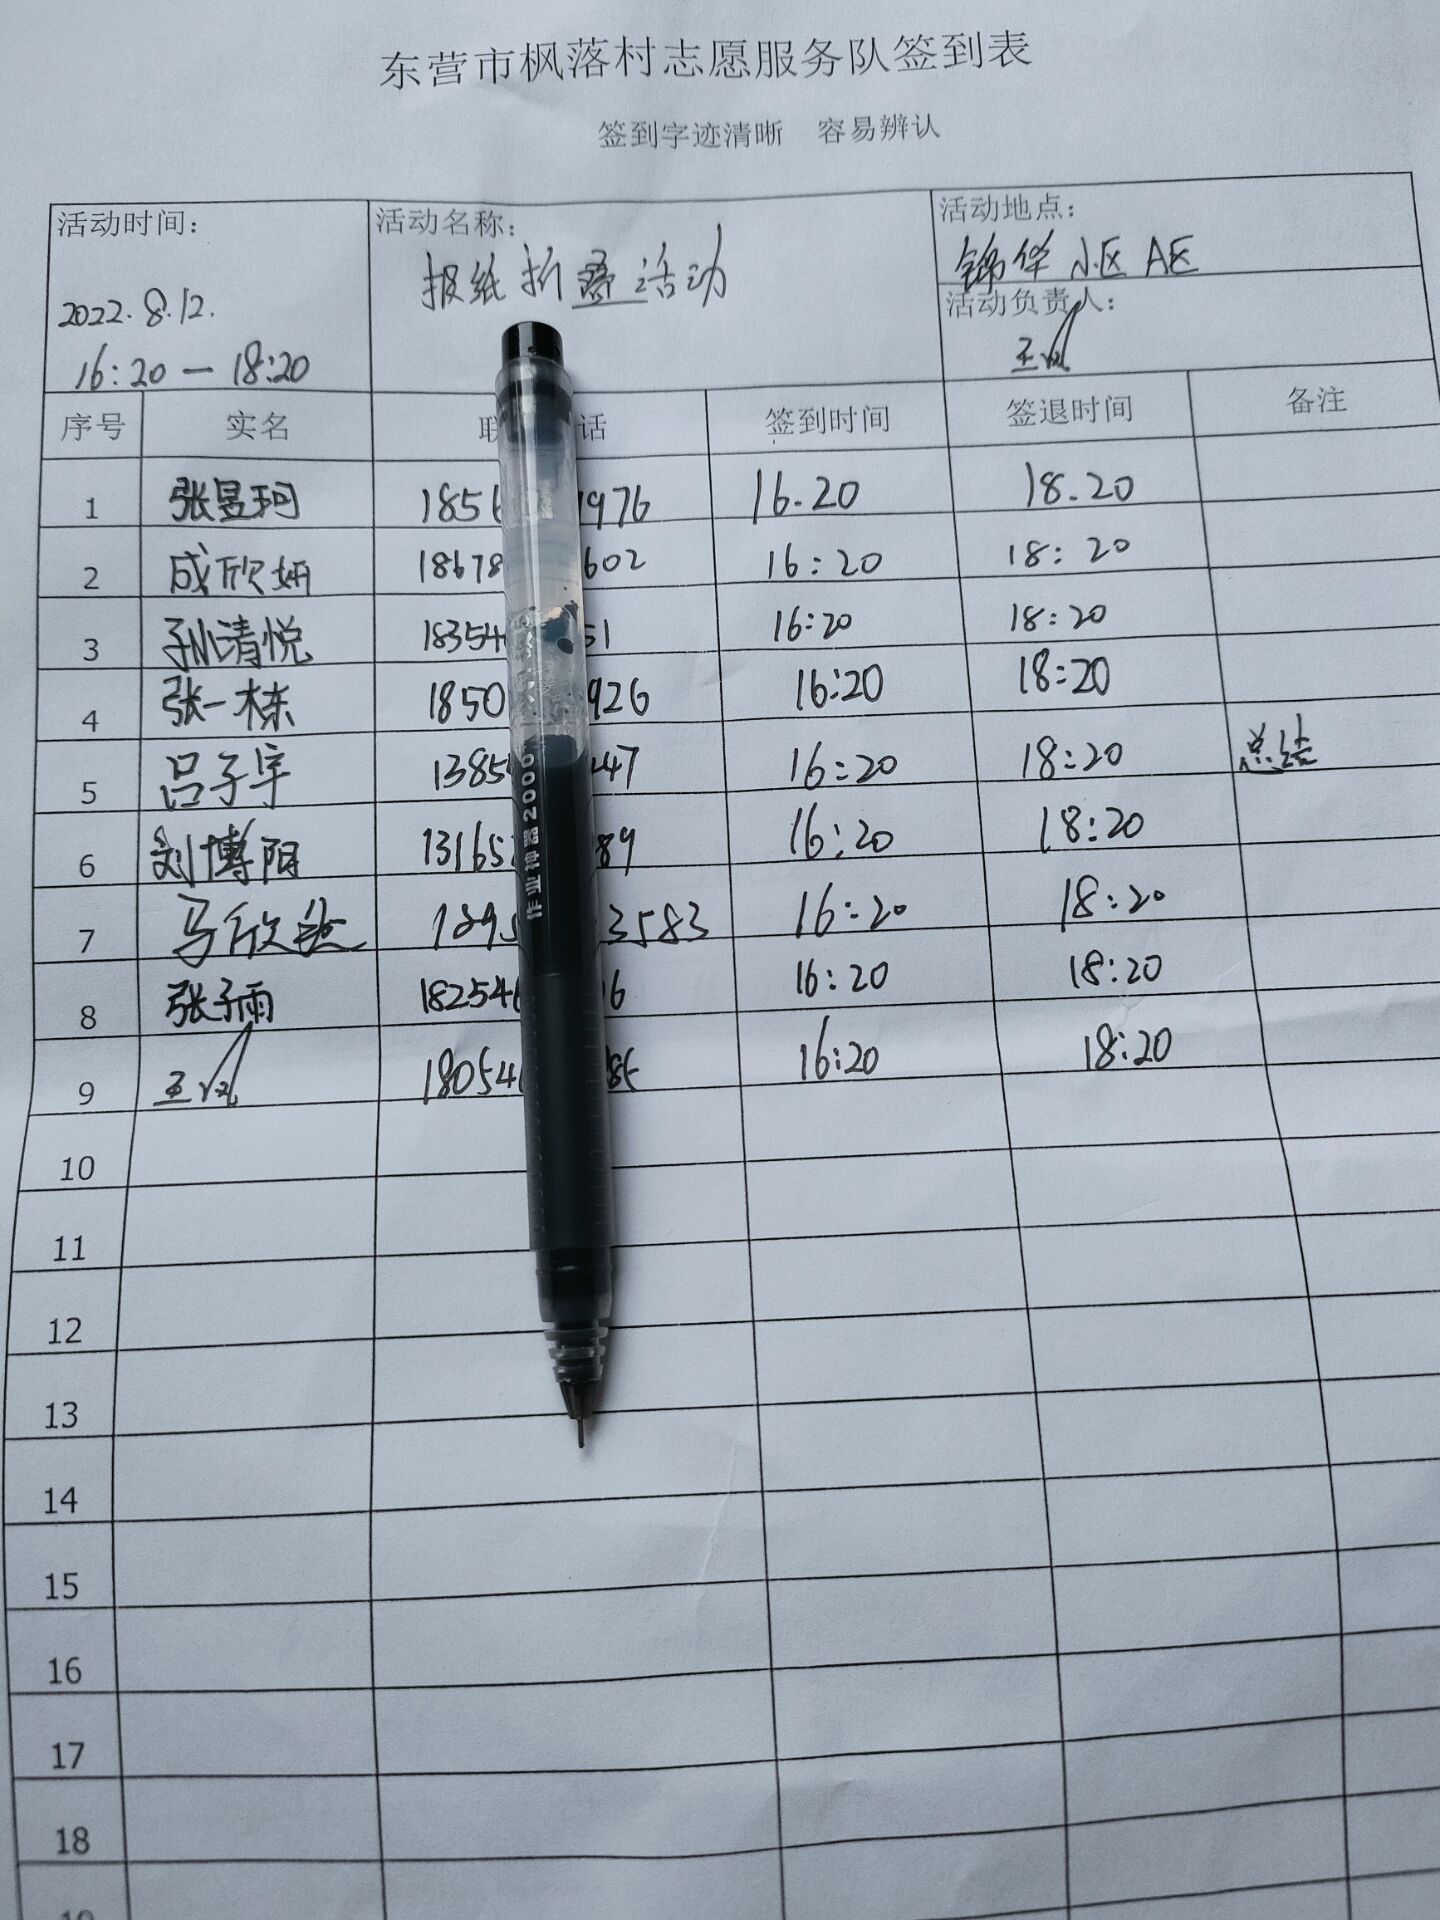 东营市枫落村志愿服务队签到表
签到字迹清晰 容易辨认
活动时间: 活动名称: 活动地点:
报纸折叠活动 锦华小区A区
2022.8.12. 活动负责人:
16:20—18:20
序号 实名 联 话 签到时间 签退时间 备注
1 张昱珂 1856 1976 16.20 18.20
2 成欣妍 18678 602 16:20 18:20
3 孙清悦 18354 51 16:20 18:20
4 张一栋 1850 926 16:20 18:20
5 吕子宇 1385 47 16:20 18:20 总结
6 刘博阳 13165 89 16:20 18:20
7 马欣 1895 3583 16:20 18:20
8 张子雨 182546 16 16:20 18:20
9 18054 85 16:20 18:20
10
11
12
13
14
15
16
17
18
19
作业神器2000